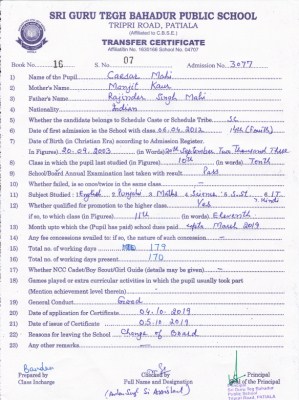 SRI GURU TEGH BAHADUR PUBLIC SCHOOL
TRIPRI ROAD, PATIALA
(Affiliated to C.B.S.E.)
TRANSFER CERTIFICATE
Affiliation No. 1630166 School No. 04707
Book No. 16 S. No. 07 Admission No. 3077
1) Name of the Pupil Caesar Mahi
2) Mother's Name Manjit Kaur
3) Father's Name Rajinder Singh Mahi
4) Nationality Indian
5) Whether the candidate belongs to Schedule Caste or Schedule Tribe. SC
6) Date of first admission in the School with class. 06.04.2012 4th (Fourth)
7) Date of Birth (in Christian Era) according to Admission Register.
(In Figures) 20.09.2003 (in Words) 20th September Two Thousand Three
8) Class in which the pupil last studied (in figures) 10th (in words) Tenth
9) School/Board Annual Examination last taken with result Pass
10) Whether failed, is so once/twice in the same class —
11) Subject Studied : English Punjabi Maths Science S.St. I.T Hindi
12) Whether qualified for promotion to the higher class. Yes
if so, to which class (in figures) 11th (in words) Eleventh
13) Month upto which the (Pupil has paid) school dues paid upto March 2019
14) Any fee concession availed to: if so, the nature of such concession —
15) Total no. of working days 179
16) Total no. of working days present 170
17) Whether NCC Cadet/Boy Scout/Girl Guide (details may be given) —
18) Games played or extra curricular activities in which the pupil usually took part
(Mention achievement level therein) —
19) General Conduct Good
20) Date of application for Certificate 04.10.2019
21) Date of issue of Certificate 05.10.2019
22) Reasons for leaving the School Change of Board
23) Any other remarks —
Prepared by Checked by Principal
Class Incharge Full Name and Designation Seal of the Principal
Principal
Sri Guru Teg Bahadur
Public School
Tripari Road, PATIALA